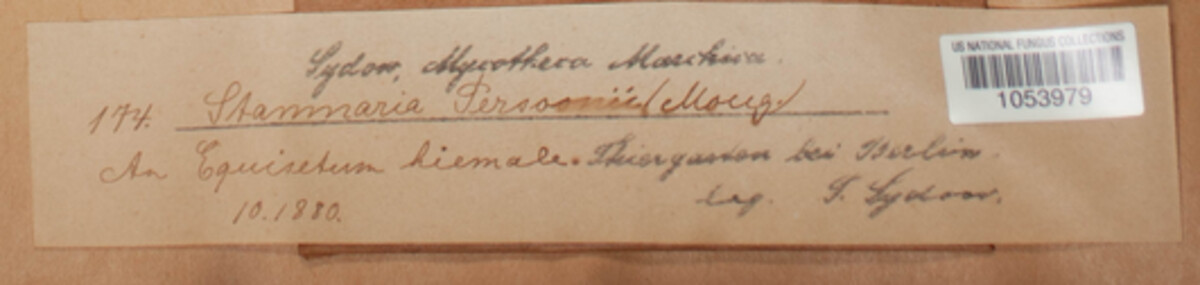 Sydow, Mycotheca Marchica.
174. Stammaria Persoonii (Moug.)
An Equisetum hiemale. Thiergarten bei Berlin.
10.1880. leg. P. Sydow.
US NATIONAL FUNGUS COLLECTIONS
1053979